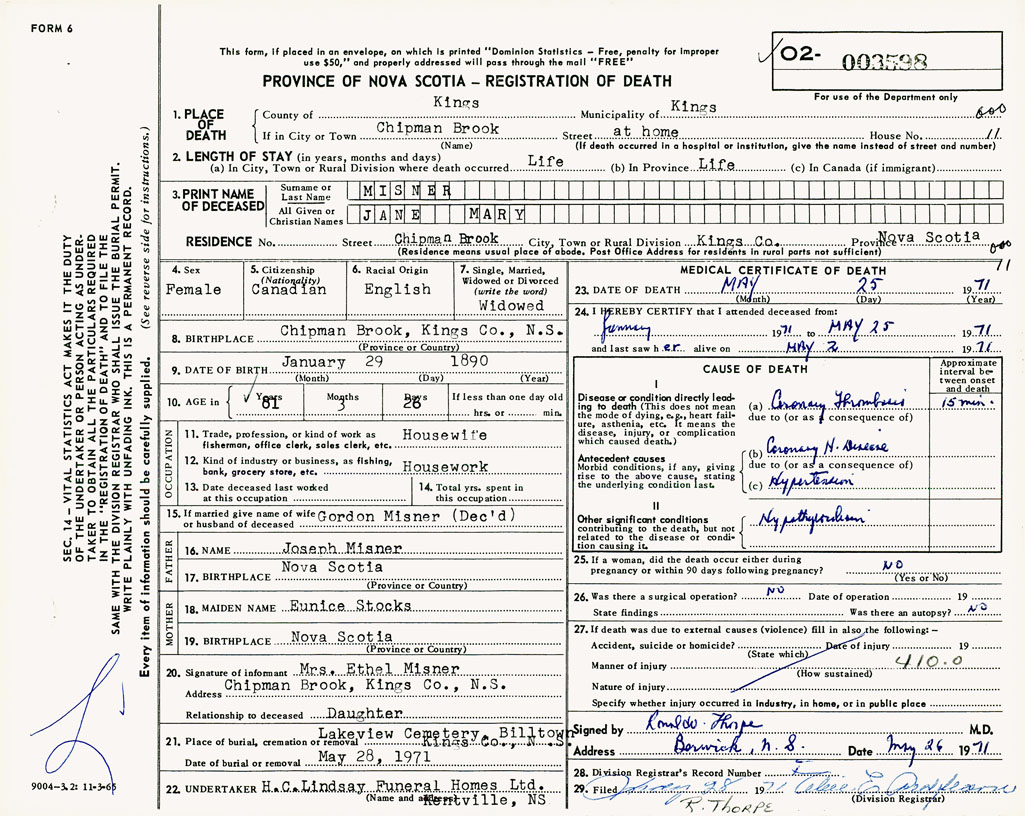 FORM 6
This form, if placed in an envelope, on which is printed "Dominion Statistics – Free, penalty for improper
use $50," and properly addressed will pass through the mail "FREE"
PROVINCE OF NOVA SCOTIA – REGISTRATION OF DEATH
O2- 003598
For use of the Department only
SEC. 14 – VITAL STATISTICS ACT MAKES IT THE DUTY
OF THE UNDERTAKER OR PERSON ACTING AS UNDER-
TAKER TO OBTAIN ALL THE PARTICULARS REQUIRED
IN THE "REGISTRATION OF DEATH" AND TO FILE THE
SAME WITH THE DIVISION REGISTRAR WHO SHALL ISSUE THE BURIAL PERMIT.
WRITE PLAINLY WITH UNFADING INK. THIS IS A PERMANENT RECORD.
Every item of information should be carefully supplied. (See reverse side for instructions.)
1. PLACE OF DEATH
County of Kings Municipality of Kings
If in City or Town Chipman Brook Street at home House No. 11
(Name) (If death occurred in a hospital or institution, give the name instead of street and number)
2. LENGTH OF STAY (in years, months and days)
(a) In City, Town or Rural Division where death occurred Life (b) In Province Life (c) In Canada (if immigrant)
3. PRINT NAME OF DECEASED
Surname or Last Name MISNER
All Given or Christian Names JANE MARY
RESIDENCE No. Street Chipman Brook City, Town or Rural Division Kings Co. Province Nova Scotia
(Residence means usual place of abode. Post Office Address for residents in rural parts not sufficient)
11
4. Sex Female
5. Citizenship (Nationality) Canadian
6. Racial Origin English
7. Single, Married, Widowed or Divorced (write the word) Widowed
8. BIRTHPLACE Chipman Brook, Kings Co., N.S.
(Province or Country)
9. DATE OF BIRTH January 29 1890
(Month) (Day) (Year)
10. AGE in Years 81 Months 3 Days 26 If less than one day old
hrs. or min.
OCCUPATION
11. Trade, profession, or kind of work as fisherman, office clerk, sales clerk, etc. Housewife
12. Kind of industry or business, as fishing, bank, grocery store, etc. Housework
13. Date deceased last worked at this occupation
14. Total yrs. spent in this occupation
15. If married give name of wife or husband of deceased Gordon Misner (Dec'd)
FATHER
16. NAME Joseph Misner
17. BIRTHPLACE Nova Scotia
(Province or Country)
MOTHER
18. MAIDEN NAME Eunice Stocks
19. BIRTHPLACE Nova Scotia
(Province or Country)
20. Signature of informant Mrs. Ethel Misner
Address Chipman Brook, Kings Co., N.S.
Relationship to deceased Daughter
21. Place of burial, cremation or removal Lakeview Cemetery, Billtown
Kings Co., N.S.
Date of burial or removal May 28, 1971
22. UNDERTAKER H.C. Lindsay Funeral Homes Ltd.
(Name and address) Kentville, NS
9004–3.2: 11-3-65
MEDICAL CERTIFICATE OF DEATH
23. DATE OF DEATH MAY 25 1971
(Month) (Day) (Year)
24. I HEREBY CERTIFY that I attended deceased from:
January 1971 to MAY 25 1971
and last saw her alive on MAY 2 1971
CAUSE OF DEATH
Approximate interval between onset and death
I
Disease or condition directly leading to death (This does not mean the mode of dying, e.g., heart failure, asthenia, etc. It means the disease, injury, or complication which caused death.)
(a) Coronary Thrombosis 15 min.
due to (or as a consequence of)
Antecedent causes
Morbid conditions, if any, giving rise to the above cause, stating the underlying condition last.
(b) Coronary H. Disease
due to (or as a consequence of)
(c) Hypertension
II
Other significant conditions contributing to the death, but not related to the disease or condition causing it.
Hypothyroidism
25. If a woman, did the death occur either during
pregnancy or within 90 days following pregnancy? NO
(Yes or No)
26. Was there a surgical operation? NO Date of operation 19
State findings Was there an autopsy? NO
27. If death was due to external causes (violence) fill in also the following: –
Accident, suicide or homicide? Date of injury 19
(State which)
Manner of injury 410.0
(How sustained)
Nature of injury
Specify whether injury occurred in industry, in home, or in public place
Signed by Ronald W. Thorpe M.D.
Address Berwick, N.S. Date May 26 1971
28. Division Registrar's Record Number
29. Filed 28 1971
(Division Registrar)
R. THORPE